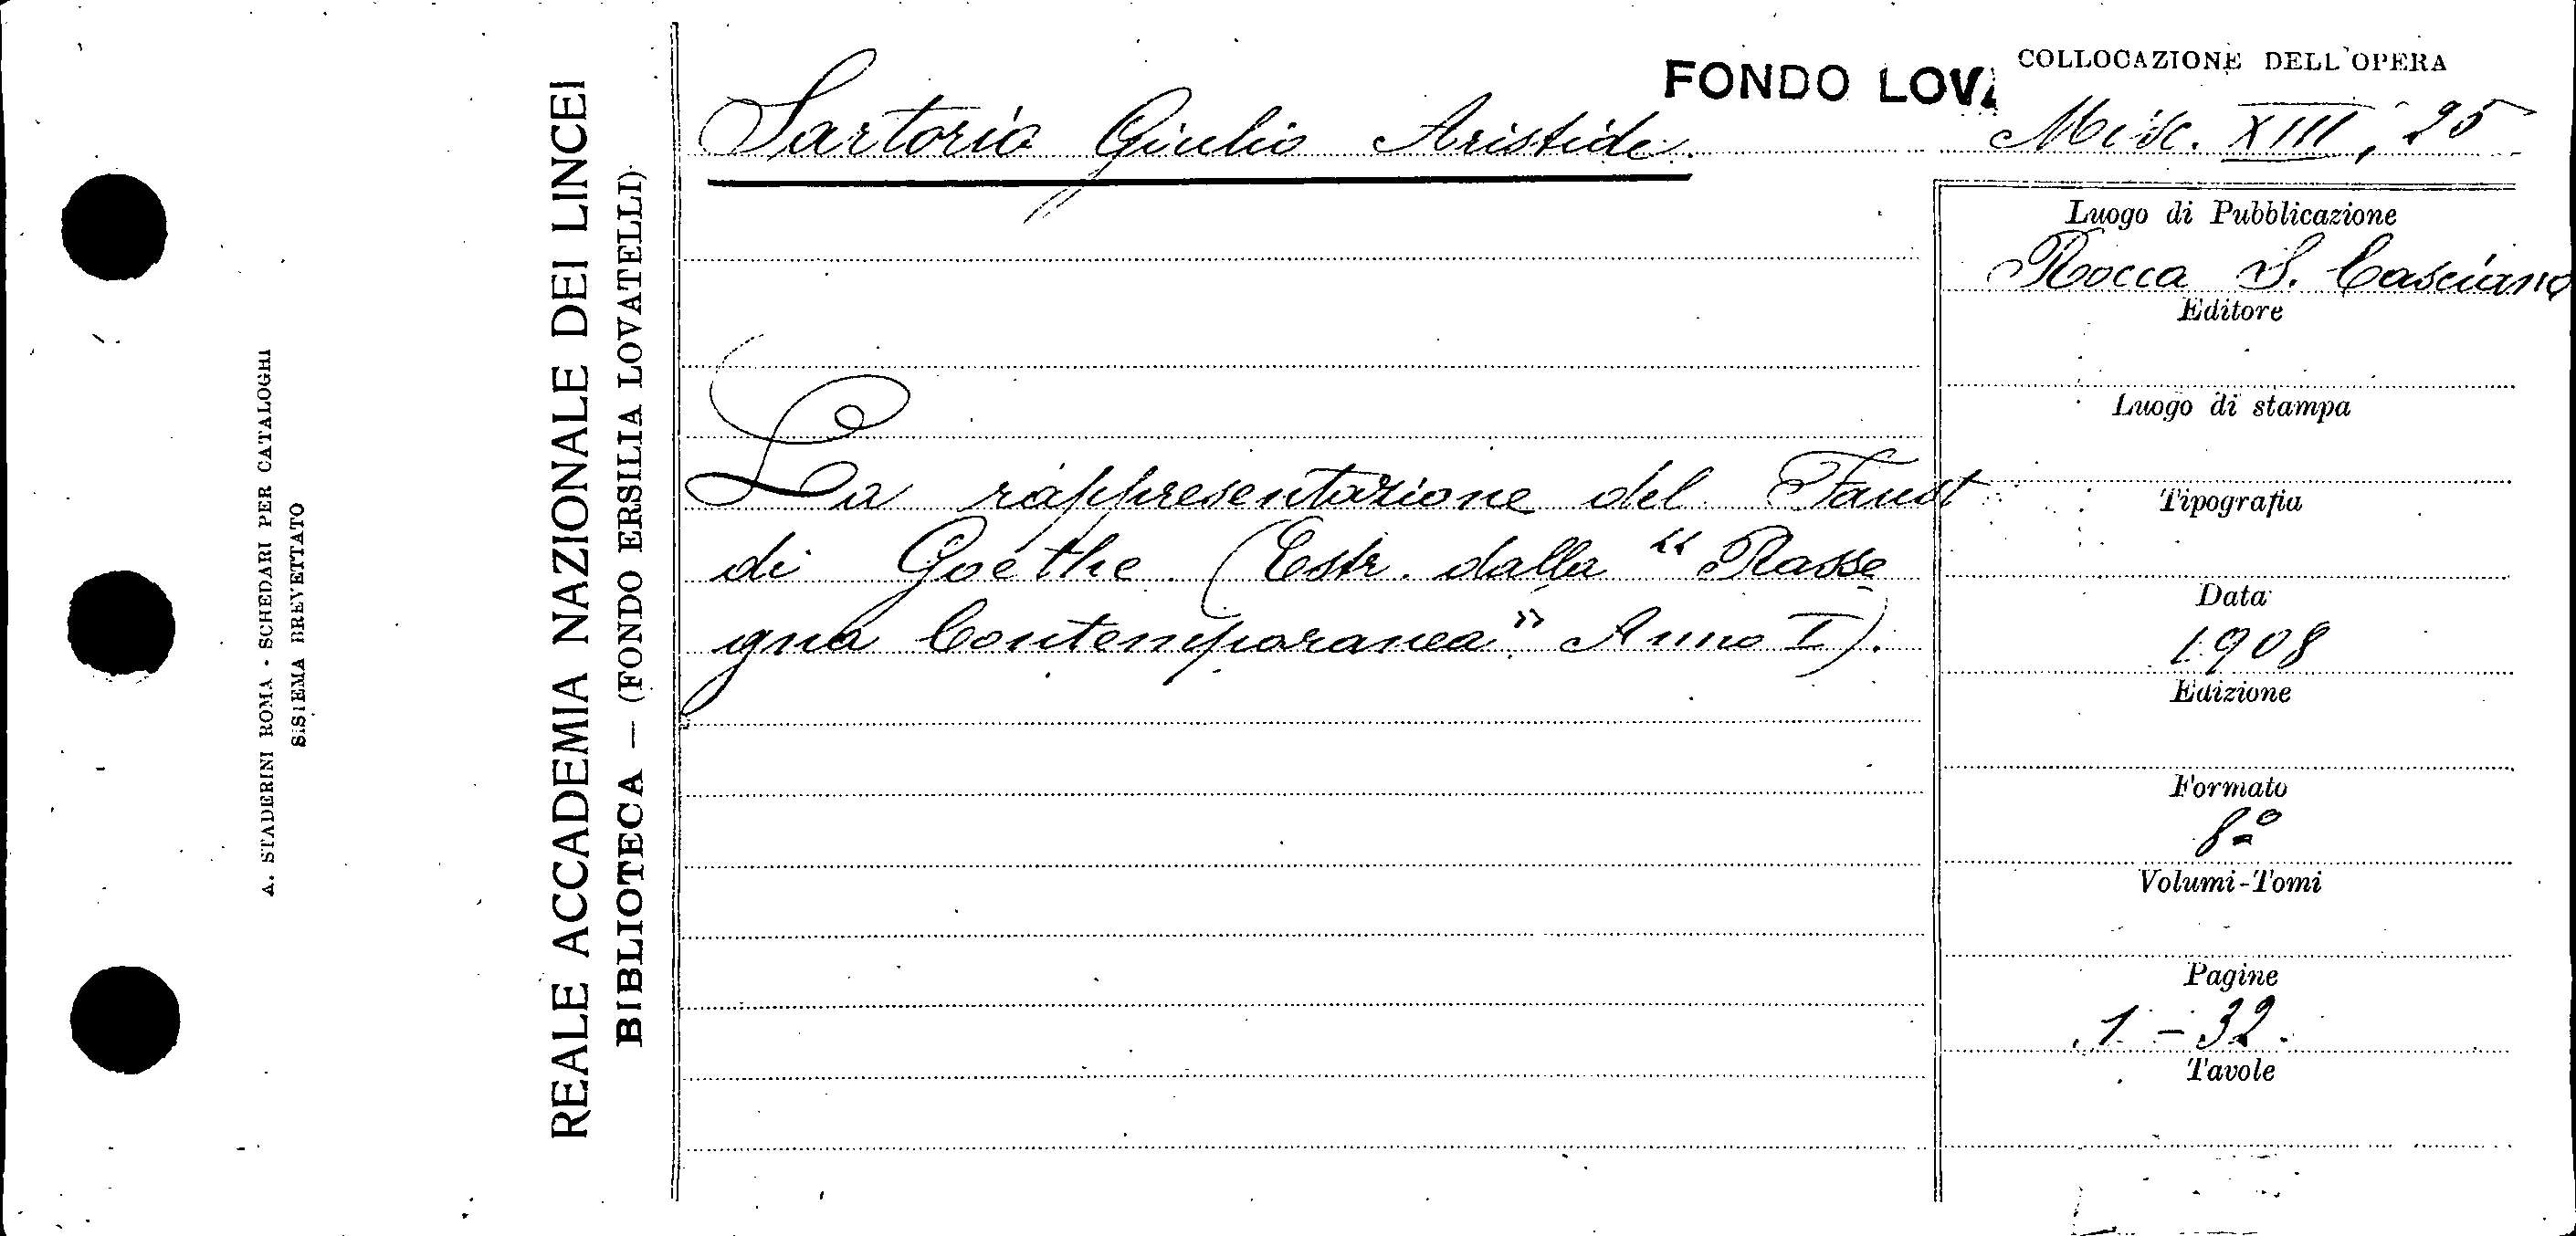 A. STADERINI ROMA - SCHEDARI PER CATALOGHI
SISTEMA BREVETTATO
REALE ACCADEMIA NAZIONALE DEI LINCEI
BIBLIOTECA — (FONDO ERSILIA LOVATELLI)
FONDO LOVA
COLLOCAZIONE DELL'OPERA
Sartorio Giulio Aristide.
Misc. XIII, 25
Luogo di Pubblicazione
Rocca S. Casciano
Editore
Luogo di stampa
La rappresentazione del Faust
di Goethe. (Estr. dalla "Rasse
gna Contemporanea" Anno I).
Tipografia
Data
1908
Edizione
Formato
8º
Volumi-Tomi
Pagine
1-32.
Tavole